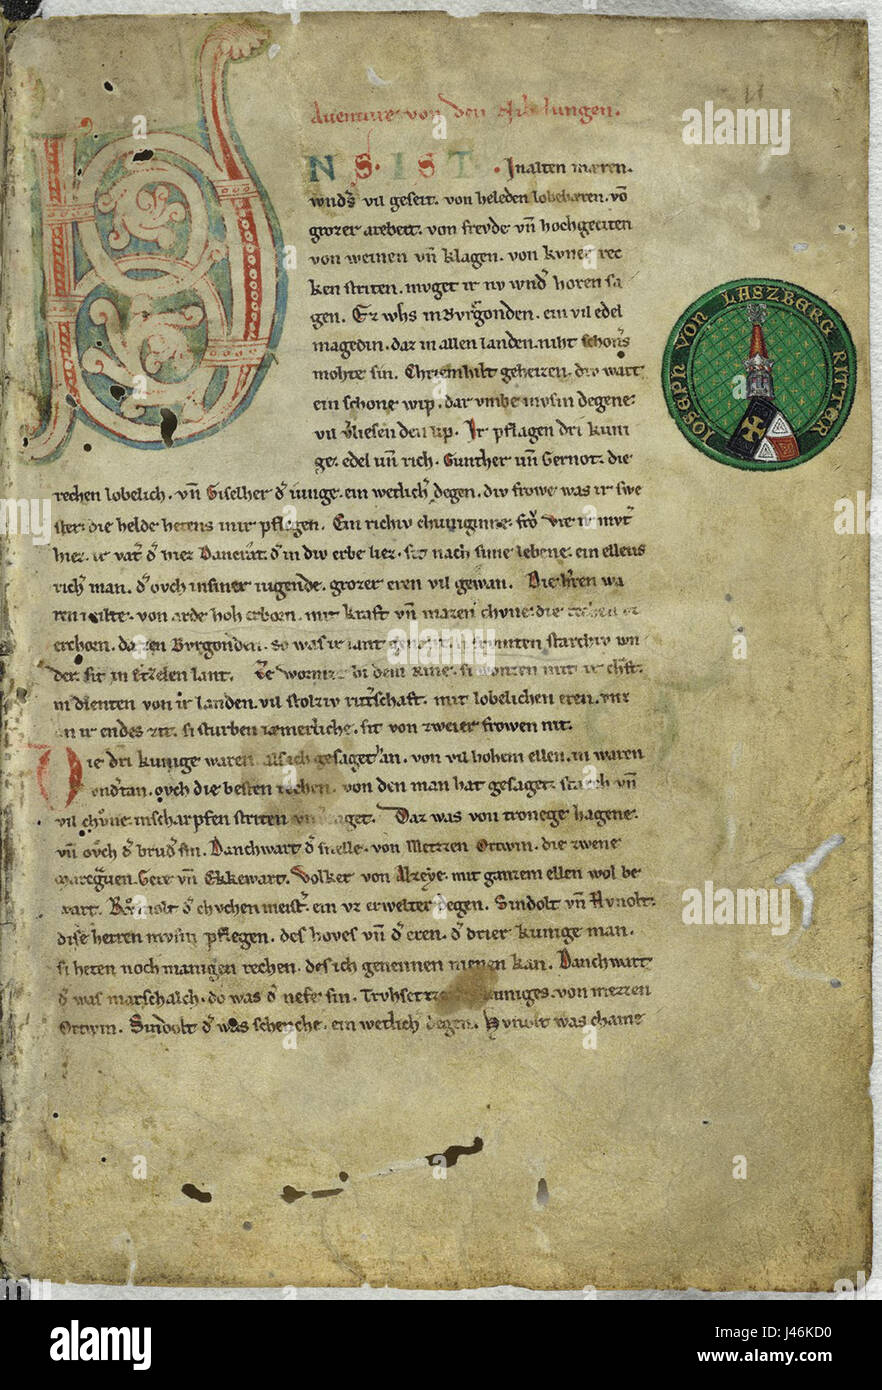 Auenture von den Nibelungen.
VNS. IST. Inalten mæren.
wnds vil geseit. von heleden lobebæren. võ
grozer arebeit. von frevde vñ hochgeciten
von weinen vñ klagen. von kvner rec
ken striten. mvget ir nv wnd horen sa
gen. Ez whs inBvrgonden. ein vil edel
magedin. daz in allen landen. niht schoners
mohte sin. Chriemhilt geheizen. div wart
ein schone wip. dar vmbe mvsin degene
vil vliesen den lip. Ir pflagen dri kuni
ge. edel vñ rich. Gunther vñ Gernot. die
rechen lobelich. vñ Giselher d iunge. ein wetlich degen. div frowe was ir swe
ster. die helde hetens inir pflegen. Ein richiv chuniginne. frov Vte ir mvt
hiez. ir vat d hiez Dancrat. d in div erbe liez. sit nach sime lebene. ein ellens
rich man. d ovch insiner iugende. grozer eren vil gewan. Die hren wa
ren milte. von arde hoh erborn. mit kraft vñ mazen chvne. die rechen vz
erchorn. da zen Bvrgonden. so was ir lant genant. si frvmten starchiv wn
der. sit in Etzelen lant. Ze Wormze bi dem Rine. si wonten mit ir chraft.
in dienten von ir landen. vil stolziv ritterschaft. mit lobelichen eren. vnz
an ir endes zit. si sturben iæmerliche. sit von zweier frowen nit.
Die dri kunige waren. als ich gesaget han. von vil hohem ellen. in waren
vndtan. ovch die besten rechen. von den man hat gesaget. starch vñ
vil chvne. inscharpfen striten vnverzaget. Daz was von tronege hagene.
vñ ovch d brud sin. Danchwart d snelle. von Metzzen Ortwin. die zwene
maregraven. Gere vñ Ekkewart. Volker von Alzeye. mit ganzem ellen wol be
wart. Rvmolt d chvchenmeister. ein vz erwelter degen. Sindolt vñ Hvnolt.
dise herren mvsin pflegen. des hoves vñ d eren. d drier kunige man.
si heten noch manigen rechen. des ich genennen nienen kan. Danchwart
d was marschalch. do was d nefe sin. Trvhsetze des kuniges. von mezzen
Ortwin. Sindolt d was schenche. ein wetlich degen. Hvnolt was chame
IOSEPH VON LASZBERG RITTER
alamy
a
alamy stock photo
J46KD0
www.alamy.com